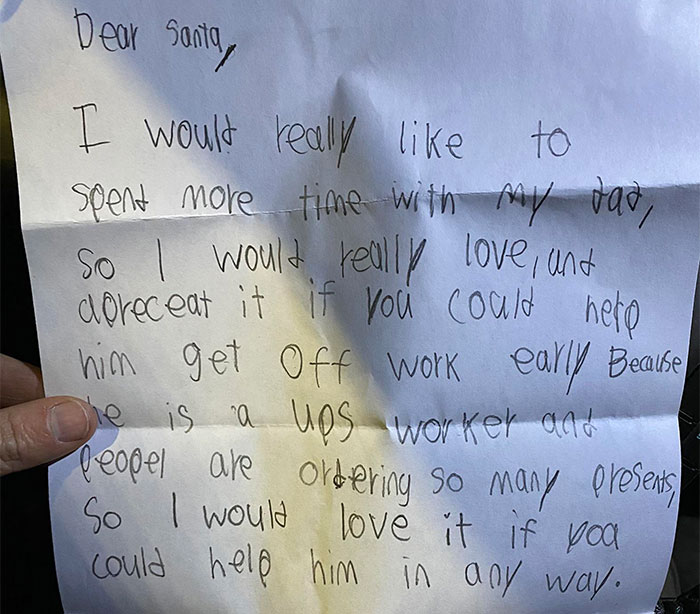 Dear Santa,
I would really like to
spent more time with my dad,
so I would really love, and
apreceat it if you could help
him get off work early Because
he is a ups worker and
peopel are ordering so many presents,
So I would love it if you
could help him in any way.